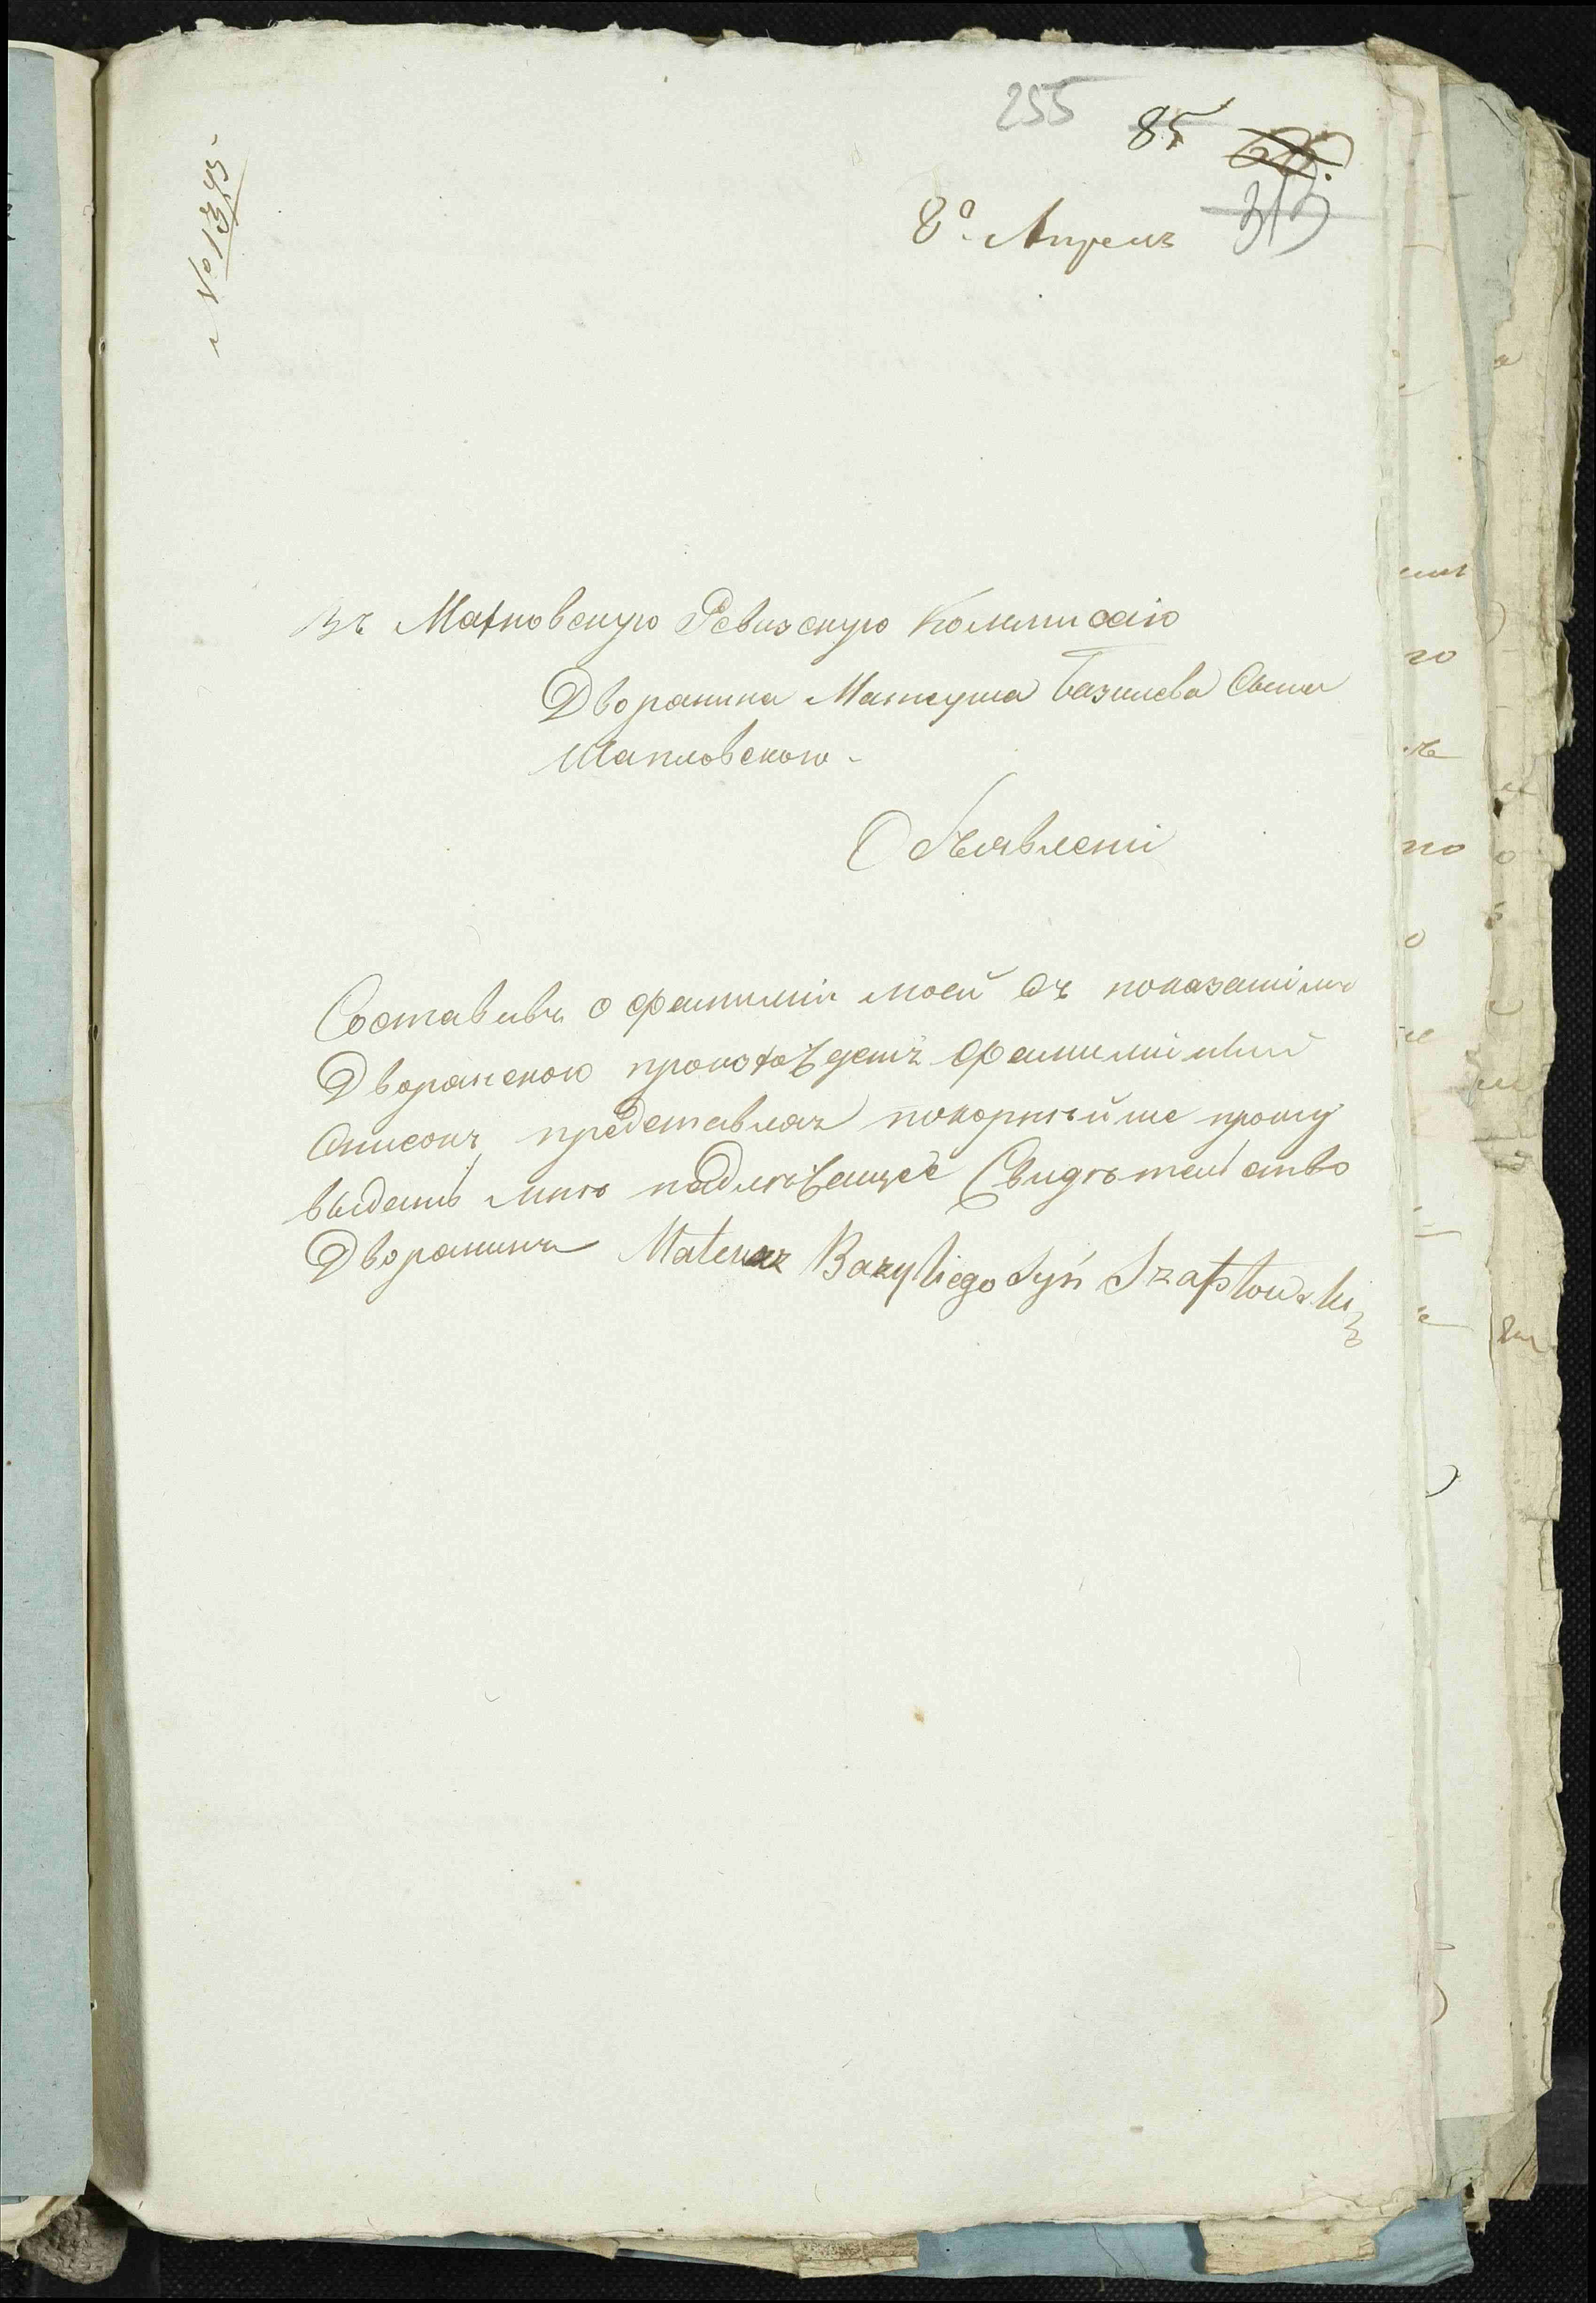 255
85
313
№ 1345
8º Апреля
Въ Махновскую Ревизскую Коммисаію
Дворанина Матеуша Базилева Сына
Шапловского -
Объявлені
Составивъ о фамиліи моей съ показаніемъ
Дворанского происхожденъ Фамиліиный
Списокъ, представляя покорнѣйше прошу
выдать мнѣ надлежащее Свидѣтельство
Дворанинъ Mateusz Bazylego Syń Szapłowski